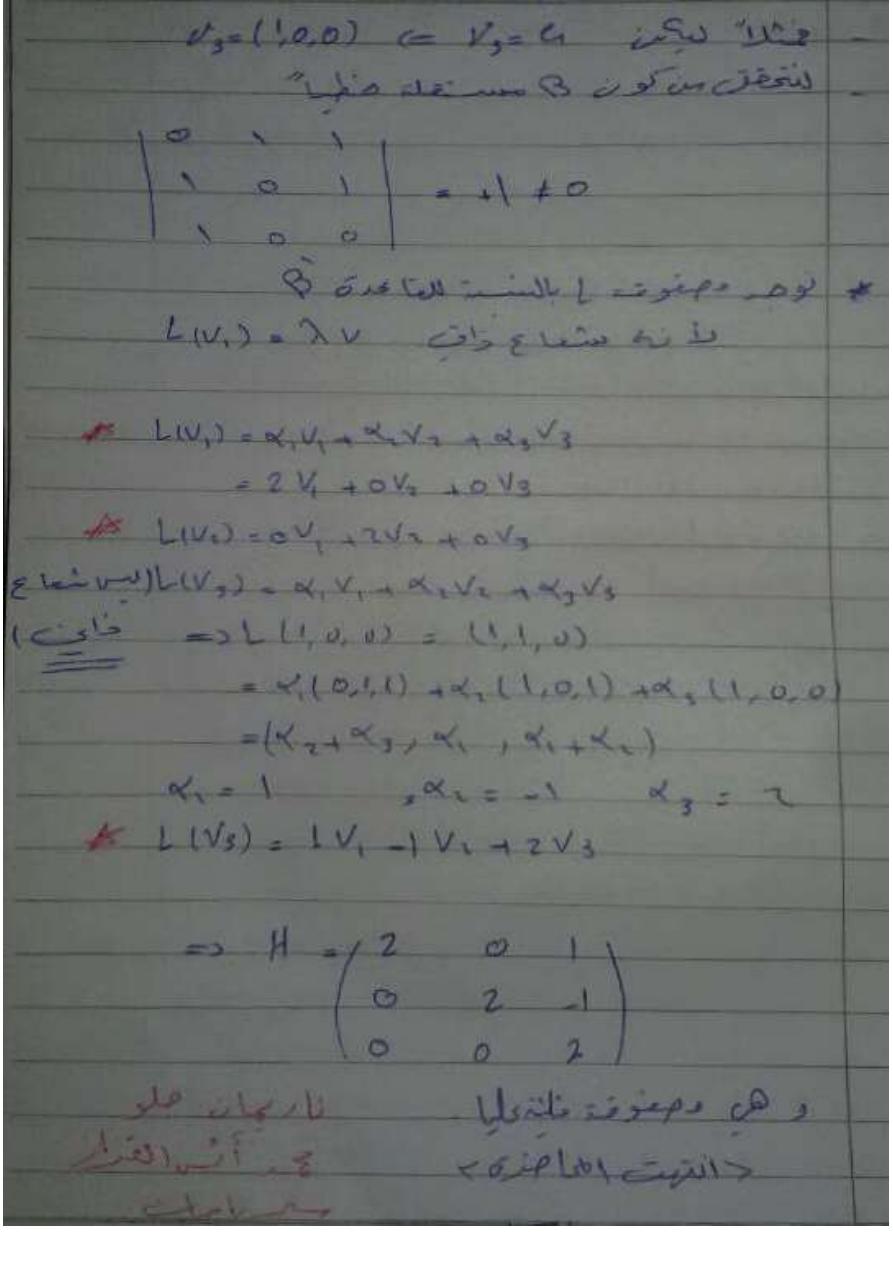 - فمثلاً ليكن V₃ = e₁ => V₃ = (1,0,0)
- لنتحقق من كون B مستقلة خطياً
| 0 1 1 |
| 1 0 1 | = +1 ≠ 0
| 1 0 0 |
* نوجد مصفوفة L بالنسبة للقاعدة B
لأنه شعاع ذاتي L(V₁) = λV
* L(V₁) = α₁V₁ + α₂V₂ + α₃V₃
= 2V₁ + 0V₂ + 0V₃
* L(V₂) = 0V₁ + 2V₂ + 0V₃
L(V₃) = α₁V₁ + α₂V₂ + α₃V₃ (ليس شعاع ذاتي)
=> L(1,0,0) = (1,1,0)
= α₁(0,1,1) + α₂(1,0,1) + α₃(1,0,0)
= (α₂+α₃, α₁, α₁+α₂)
α₁ = 1 , α₂ = -1 α₃ = 2
* L(V₃) = 1V₁ - 1V₂ + 2V₃
=> H = ( 2 0 1
0 2 -1
0 0 2 )
و هي مصفوفة مثلثية عليا
<انتهت المحاضرة>
ناريمان حلو
أنس القزاز